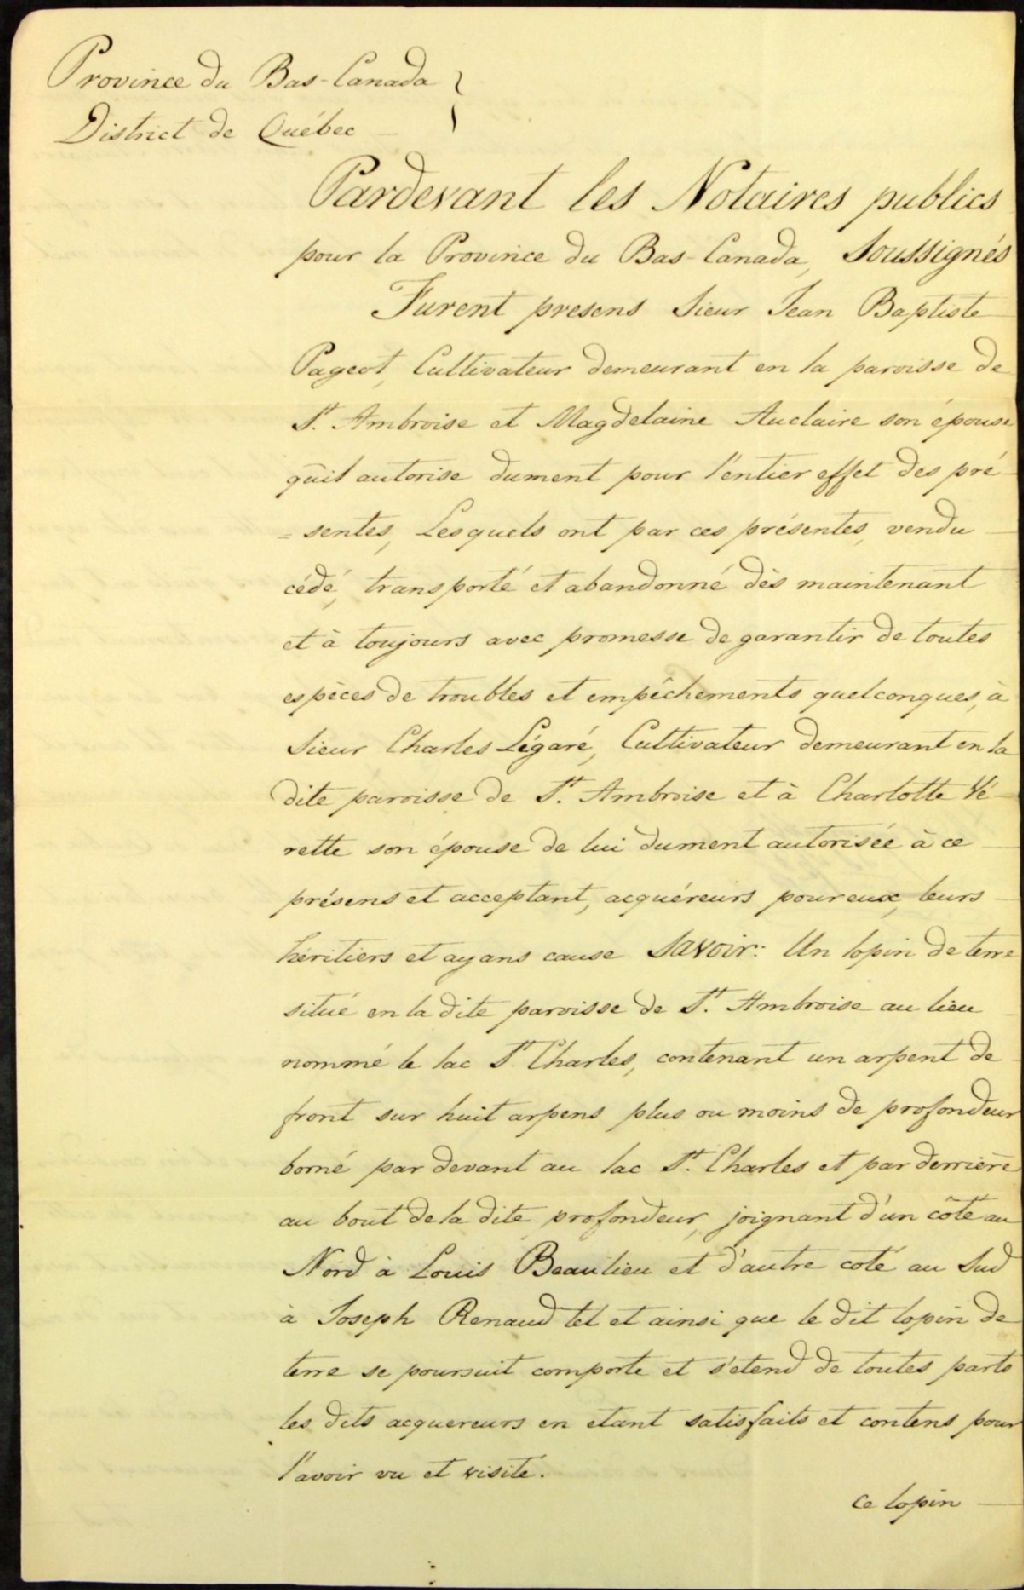 Province du Bas-Canada }
District de Québec
Pardevant les Notaires publics
pour la Province du Bas-Canada, Soussignés
Furent presens Sieur Jean Baptiste
Pageot, Cultivateur demeurant en la paroisse de
St. Ambroise et Magdelaine Auclaire son épouse
qu'il autorise dument pour l'entier effet des pré
=sentes, Lesquels ont par ces présentes, vendu
cédé, transporté et abandonné dès maintenant
et à toujours avec promesse de garantir de toutes
espèces de troubles et empêchements quelconques, à
Sieur Charles Légaré, Cultivateur demeurant en la
dite paroisse de St. Ambroise et à Charlotte Vé
rette son épouse de lui dument autorisée à ce
présens et acceptant, acquéreurs pour eux, leurs
héritiers et ayans cause Savoir: Un lopin de terre
situé en la dite paroisse de St. Ambroise au lieu
nommé le lac St Charles, contenant un arpent de
front sur huit arpens plus ou moins de profondeur
borné par devant au lac St. Charles et par derrière
au bout de la dite profondeur, joignant d'un côté au
Nord à Louis Beaulieu et d'autre coté au Sud
à Joseph Renaud tel et ainsi que le dit lopin de
terre se poursuit comporte et s'etend de toutes parts
les dits acquereurs en etant satisfaits et contens pour
l'avoir vu et visité.
Ce lopin